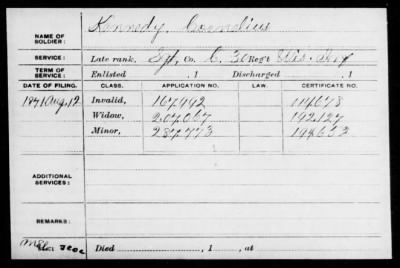 NAME OF SOLDIER: Kennedy, Cornelius
SERVICE: Late rank, Sgt, Co. C, 30 Reg't Wis. Inf
TERM OF SERVICE: Enlisted , 1 Discharged , 1
DATE OF FILING. CLASS. APPLICATION NO. LAW. CERTIFICATE NO.
1871 Aug. 12 Invalid, 167,992 114678
Widow, 207,067 192,127
Minor, 287,773 194,652
ADDITIONAL SERVICES:
REMARKS:
Died , 1 , at